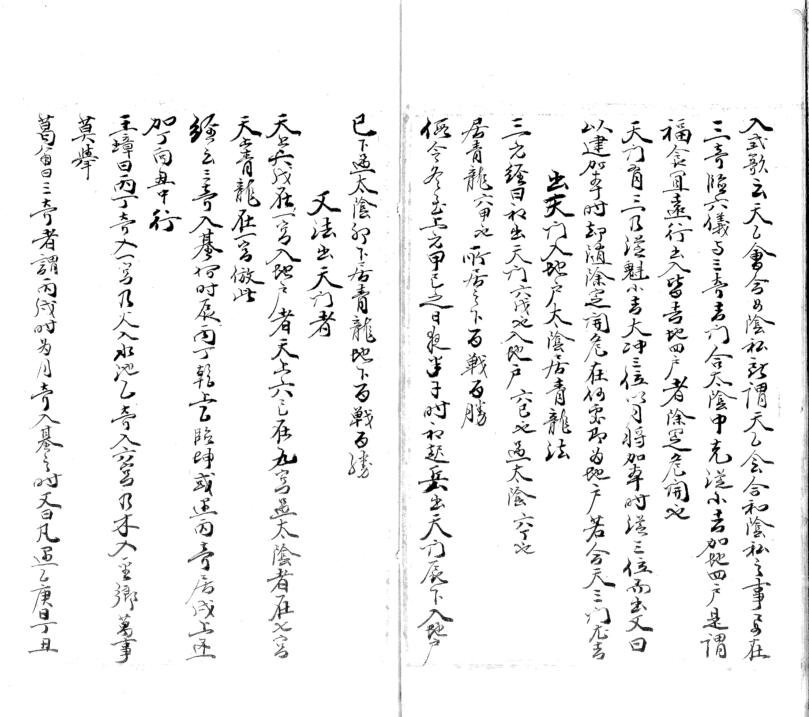 入式歌云天乙會合女陰私所謂天乙会合和陰私之事要在
三奇臨六儀与三奇吉門合太陰中克從小吉加地四戸是謂
福食宜遠行出入皆吉地四戸者除定危開也
天門有三乃從魁小吉大冲三位以月將加本時從三位而出又曰
以建加本時却随除定開危在何處即為地戸若合天三門尤吉
出天門入地戸太陰居青龍法
三元経曰初出天門六戊也入地戸六己也過太陰六丁也
居青龍六甲也所居之下百戰百勝
假令冬至上元甲己之日夜半子時初起兵出天門辰下入地戸
巳下過太陰卯下居青龍地下百戰百勝
又法出天門者
天上六戊在一宮入地戸者天上六己在九宮過太陰者在七宮
天上青龍在一宮倣此
経云三奇入墓何時辰丙丁乾上乙臨坤或遇丙奇居戌上匹
加丁向丑中行
王璋曰丙丁奇入一宮乃火入水池乙奇入六宮乃木入金鄉萬事
莫舉
葛洪曰三奇者謂丙戌時為月奇入墓之時又曰凡遇乙庚日丁丑